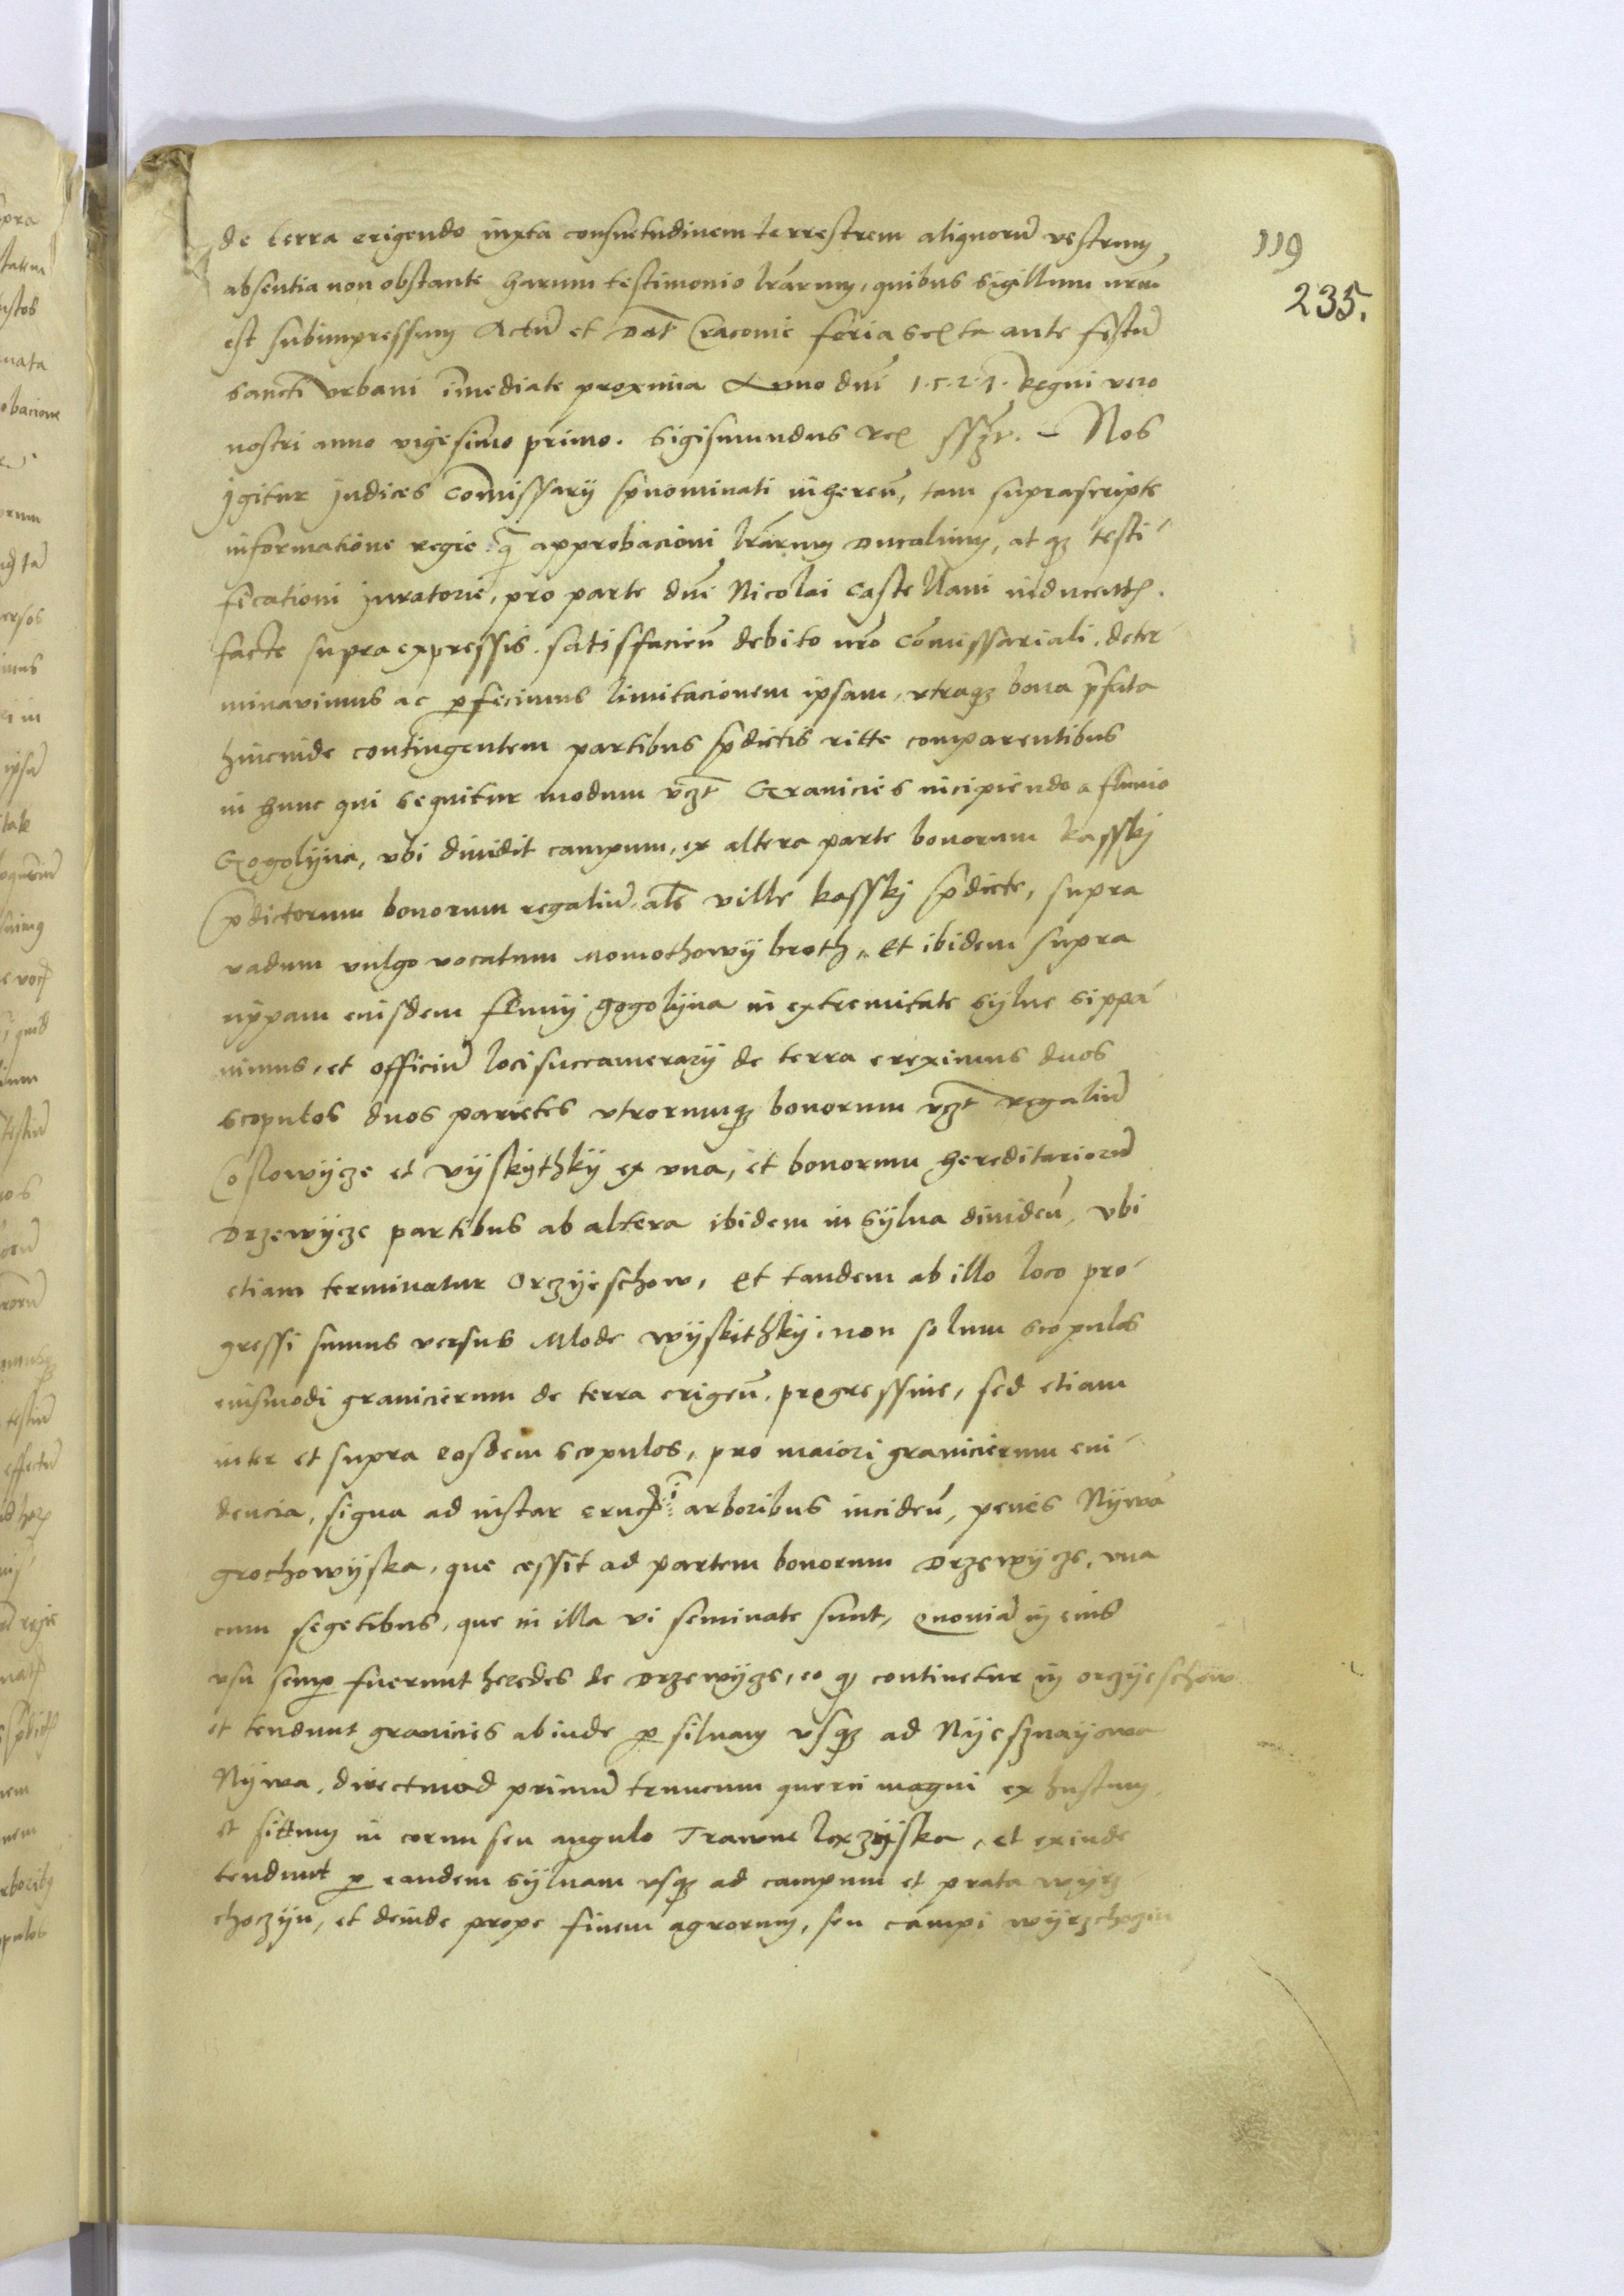 119
235.
de terra erigendo iuxta consuetudinem terrestrem aliquorū vestrum
absentia non obstante harum testimonio lrārum, quibus sigillum nrūm
est subimpressum Actū et Dat̄ Cracovie feria sexta ante festū
sancti Vrbani īmediate proxima Anno dnī 1.5.2.7. Regni vero
nostri anno vigesimo primo. Sigismundus Rex sszt. – Nos
Igitur Judices Com̄issarij sp̄nominati inheren̄, tam suprascripte
informatione regie q̄ approbacioni lrārum Ducalium, atqz testi-
ficationi Juratorie, pro parte dnī Nicolai Castellani inducentis.
facte supra expressis. satisfacien̄ debito nrō Com̄issariali, deter-
minavimus ac pfecimus limitacionem ipsam, vtraqz bona p̄fata
hincinde contingentem partibus sp̄dictis ritte comparentibus
in hunc qui sequitur modum vzt̄ Granicies incipiendo a fluuio
Gogolijna, vbi diuidit campum, ex altera parte bonorum kasskj
sp̄dictorum bonorum regaliū als̄ ville kasskj sp̄dicte, supra
vadum vulgo vocatum Momothowy broth, et ibidem supra
rypam eiusdem fluuij gogolijna in extremitate sylue sippa-
uimus, et officiū loci succamerarij de terra ereximus duos
scopulos duos parietes vtrorumqz bonorum vzt̄ regaliū
Coslowycze et vyskythky ex vna, et bonorum hereditariorū
Drzewycze partibus ab altera ibidem in sylua diuiden̄, vbi
etiam terminatur Orzyeschow, et tandem ab illo loco pro-
gressi sumus versus Mlode wyskithky, non solum scopulos
eiusmodi granicierum de terra erigen̄, progressiue, sed etiam
inter et supra eosdem scopulos, pro maiori granicierum eui-
dencia, signa ad instar crucis arboribus inciden̄, penes Nywa
grochowyska, que cessit ad partem bonorum Drzewycze, vna
cum segetibus, que in illa vi seminate sunt, Quoniā in eius
vsu semp fuerunt heredes de Drzewycze, eo q continetur in orzyeschow
et tendunt granicies abinde p siluam vsqz ad Nyesznayowa
Nywa, direct mod primū truncum querci magni exhustum,
et sittum in cornu seu angulo Trawne , et exinde
tendunt p eandem syluam vsqz ad campum et prata wyrz
choczyn, et deinde prope finem agrorum, seu campi wyrzchoczin